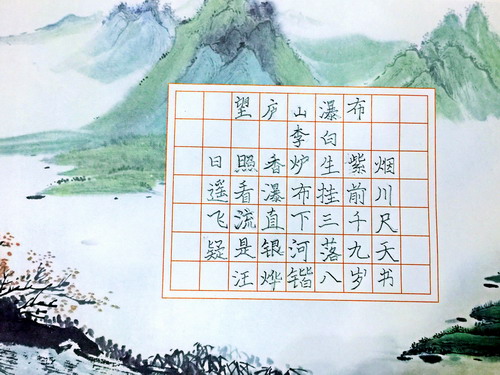 望庐山瀑布
李白
日照香炉生紫烟
遥看瀑布挂前川
飞流直下三千尺
疑是银河落九天
汪烨锴八岁书